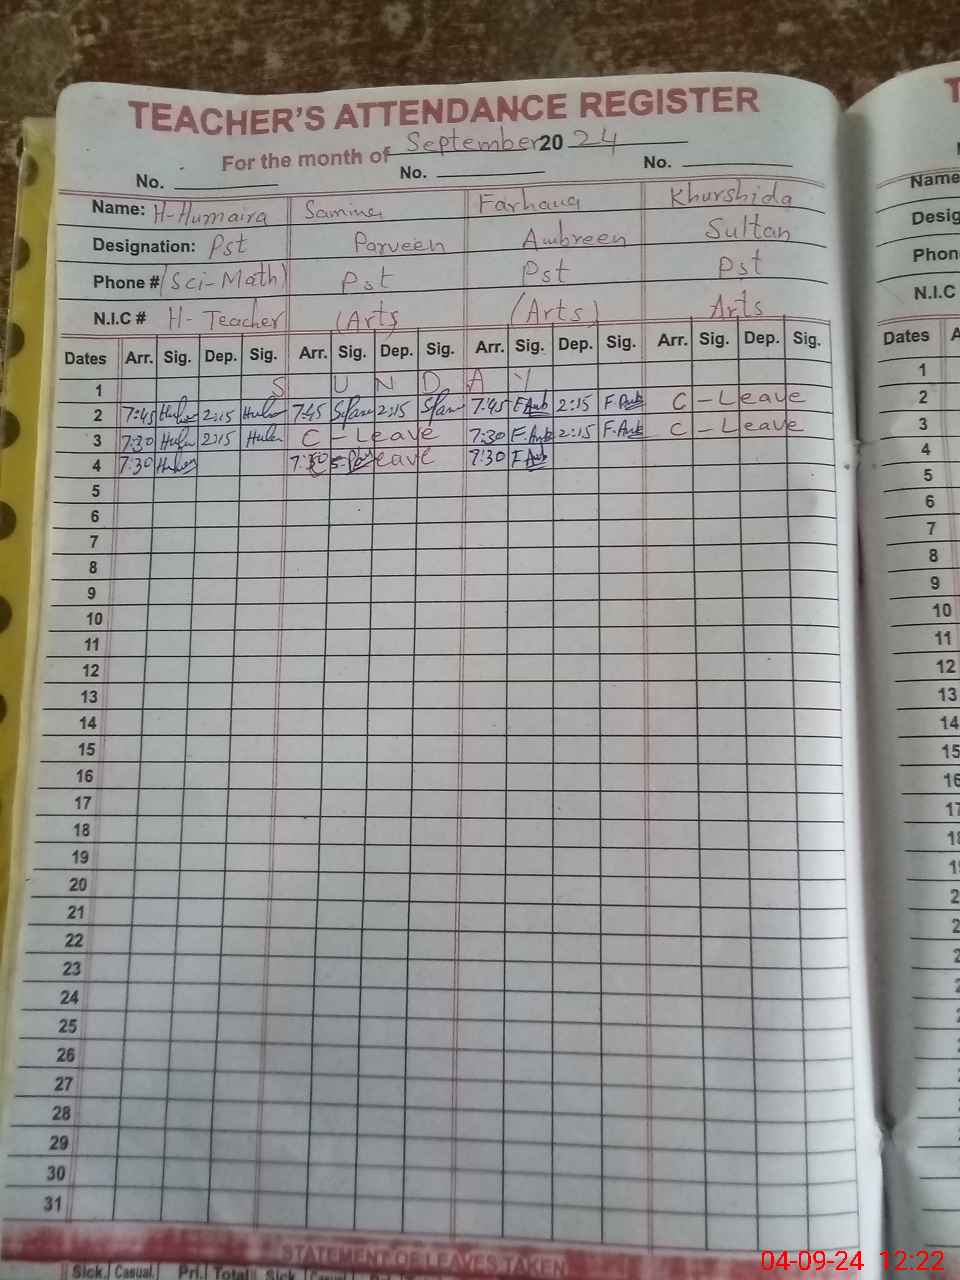 TEACHER'S ATTENDANCE REGISTER
For the month of September 2024
No. No. No.
Name: H-Humaira Samina Farhana Khurshida
Designation: Pst Parveen Ambreen Sultan
Phone # (Sci-Math) Pst Pst Pst
N.I.C # H- Teacher (Arts (Arts) Arts
Dates Arr. Sig. Dep. Sig. Arr. Sig. Dep. Sig. Arr. Sig. Dep. Sig. Arr. Sig. Dep. Sig.
1 S U N D A Y
2 7:45 2:15 7:45 2:15 7:45 2:15 C - Leave
3 7:30 2:15 C - Leave 7:30 2:15 C - Leave
4 7:30 eave 7:30
5
6
7
8
9
10
11
12
13
14
15
16
17
18
19
20
21
22
23
24
25
26
27
28
29
30
31
STATEMENT OF LEAVES TAKEN
Sick. Casual. Pri. Total Sick
Name
Desig
Phon
N.I.C
Dates A
1
2
3
4
5
6
7
8
9
10
11
12
13
14
15
04-09-24 12:22